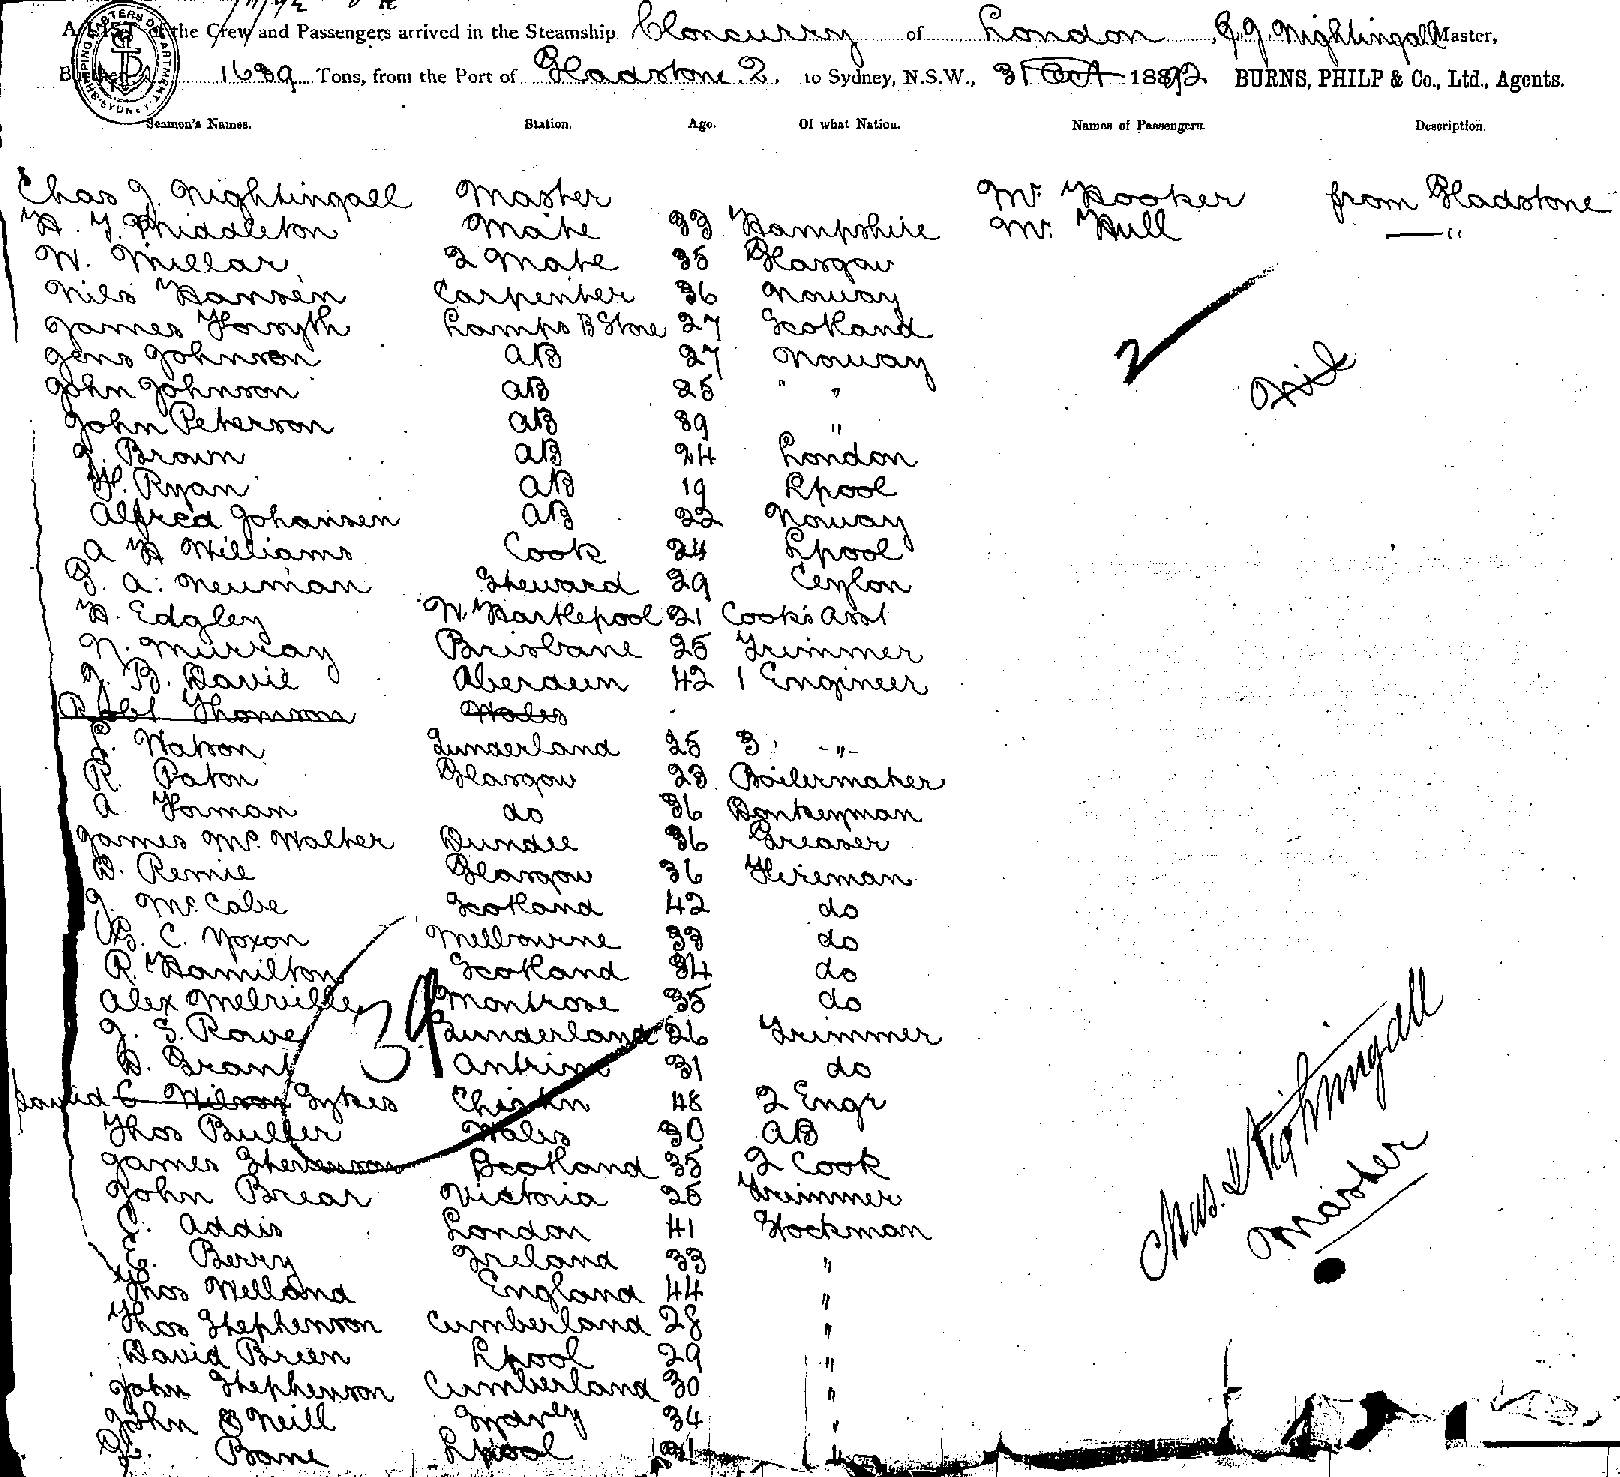 A LIST of the Crew and Passengers arrived in the Steamship Cloncurry of London, C. J. Nightingall Master,
Burthen 1689 Tons, from the Port of Gladstone Q. to Sydney, N.S.W., 31 Oct 1892 BURNS, PHILP & Co., Ltd., Agents.
Seamen's Names. Station. Age. Of what Nation. Names of Passengers. Description.
Chas J. Nightingall Master Mr. Hooker from Gladstone
H. T. Middleton Mate 33 Hampshire Mr. Hull —"
W. Millar 2 Mate 35 Glasgow
Nils Hansen Carpenter 36 Noway
James Forsyth Lamps & Store 27 Scotland
Jens Johnson AB 27 Noway
John Johnson AB 25 " "
John Peterson AB 39 "
J. Brown AB 24 London
H. Ryan AB 19 Lpool
Alfred Johansen AB 22 Noway
A H Williams Cook 24 Lpool
G. A. Neuman Steward 29 Ceylon
H. Edgley W. Hartlepool 21 Cook's Asst
N. Murray Brisbane 25 Trimmer
J. B. Davie Aberdeen 42 1 Engineer
Robt Thomson Wales
J. Watson Sunderland 25 3 -"-
R. Paton Glasgow 23 Boilermaker
A. Forman do 36 Donkeyman
James Mc. Walter Dundee 36 Greaser
D. Rennie Glasgow 36 Fireman
J. Mc. Cabe Scotland 42 do
C. Yoxon Melbourne 33 do
R. Hamilton Scotland 34 do
Alex Melville Montrose 35 do
J. S. Rowe Sunderland 26 Trimmer
D. Grant Antrim 31 do
David C Wilson Sykes 48 2 Engr
Thos Butler Wales 30 AB
James Stevenson Scotland 35 2 Cook
John Brear Victoria 25 Trimmer
C. Addis London 41 Stockman
Berry Ireland 33 "
Thos Welland England 44 "
Thos Stephenson Cumberland 28 "
David Breen Lpool 29 "
John Stephenson Cumberland 30 "
John O Neill Sydney 34 "
Bane Lpool 21 "
2
Nil
39
Chas. J Nightingall
Master